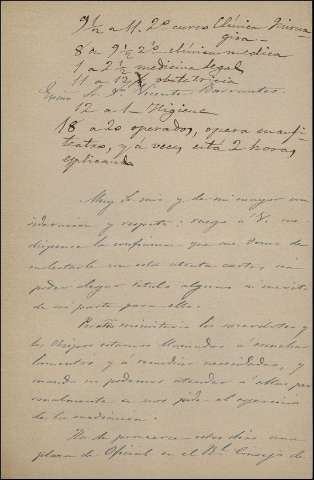 9 1/2 a 11. 2º curso Clínica Quirur-
gica-
8 a 9 1/2 2º clínica medica
1 a 2 1/2 medicina legal
11 a 12 obstetricia
Excmo S. Dn Vicente Barrantes
12 a 1- Higiene
18 a 20 operados, opera en anfi-
teatro, y á veces está 2 horas
esplicando
Muy Sr mio y de mi mayor con
sideracion y respeto: ruego á V. me
dispense la confianza que me tomo de
molestarle con esta atenta carta, sin
poder alegar titulo alguno ni merito
de mi parte para ello.
ministerio los sacerdotes y
los Obispos estamos llamados á escuchar
lamentos y á remediar necesidades, y
cuando no podemos atender á ellas per
sonalmente se nos pide el ejercicio
de la mediacion.
Ha de proveerse estos dias una
plaza de Oficial en el Rl Consejo de